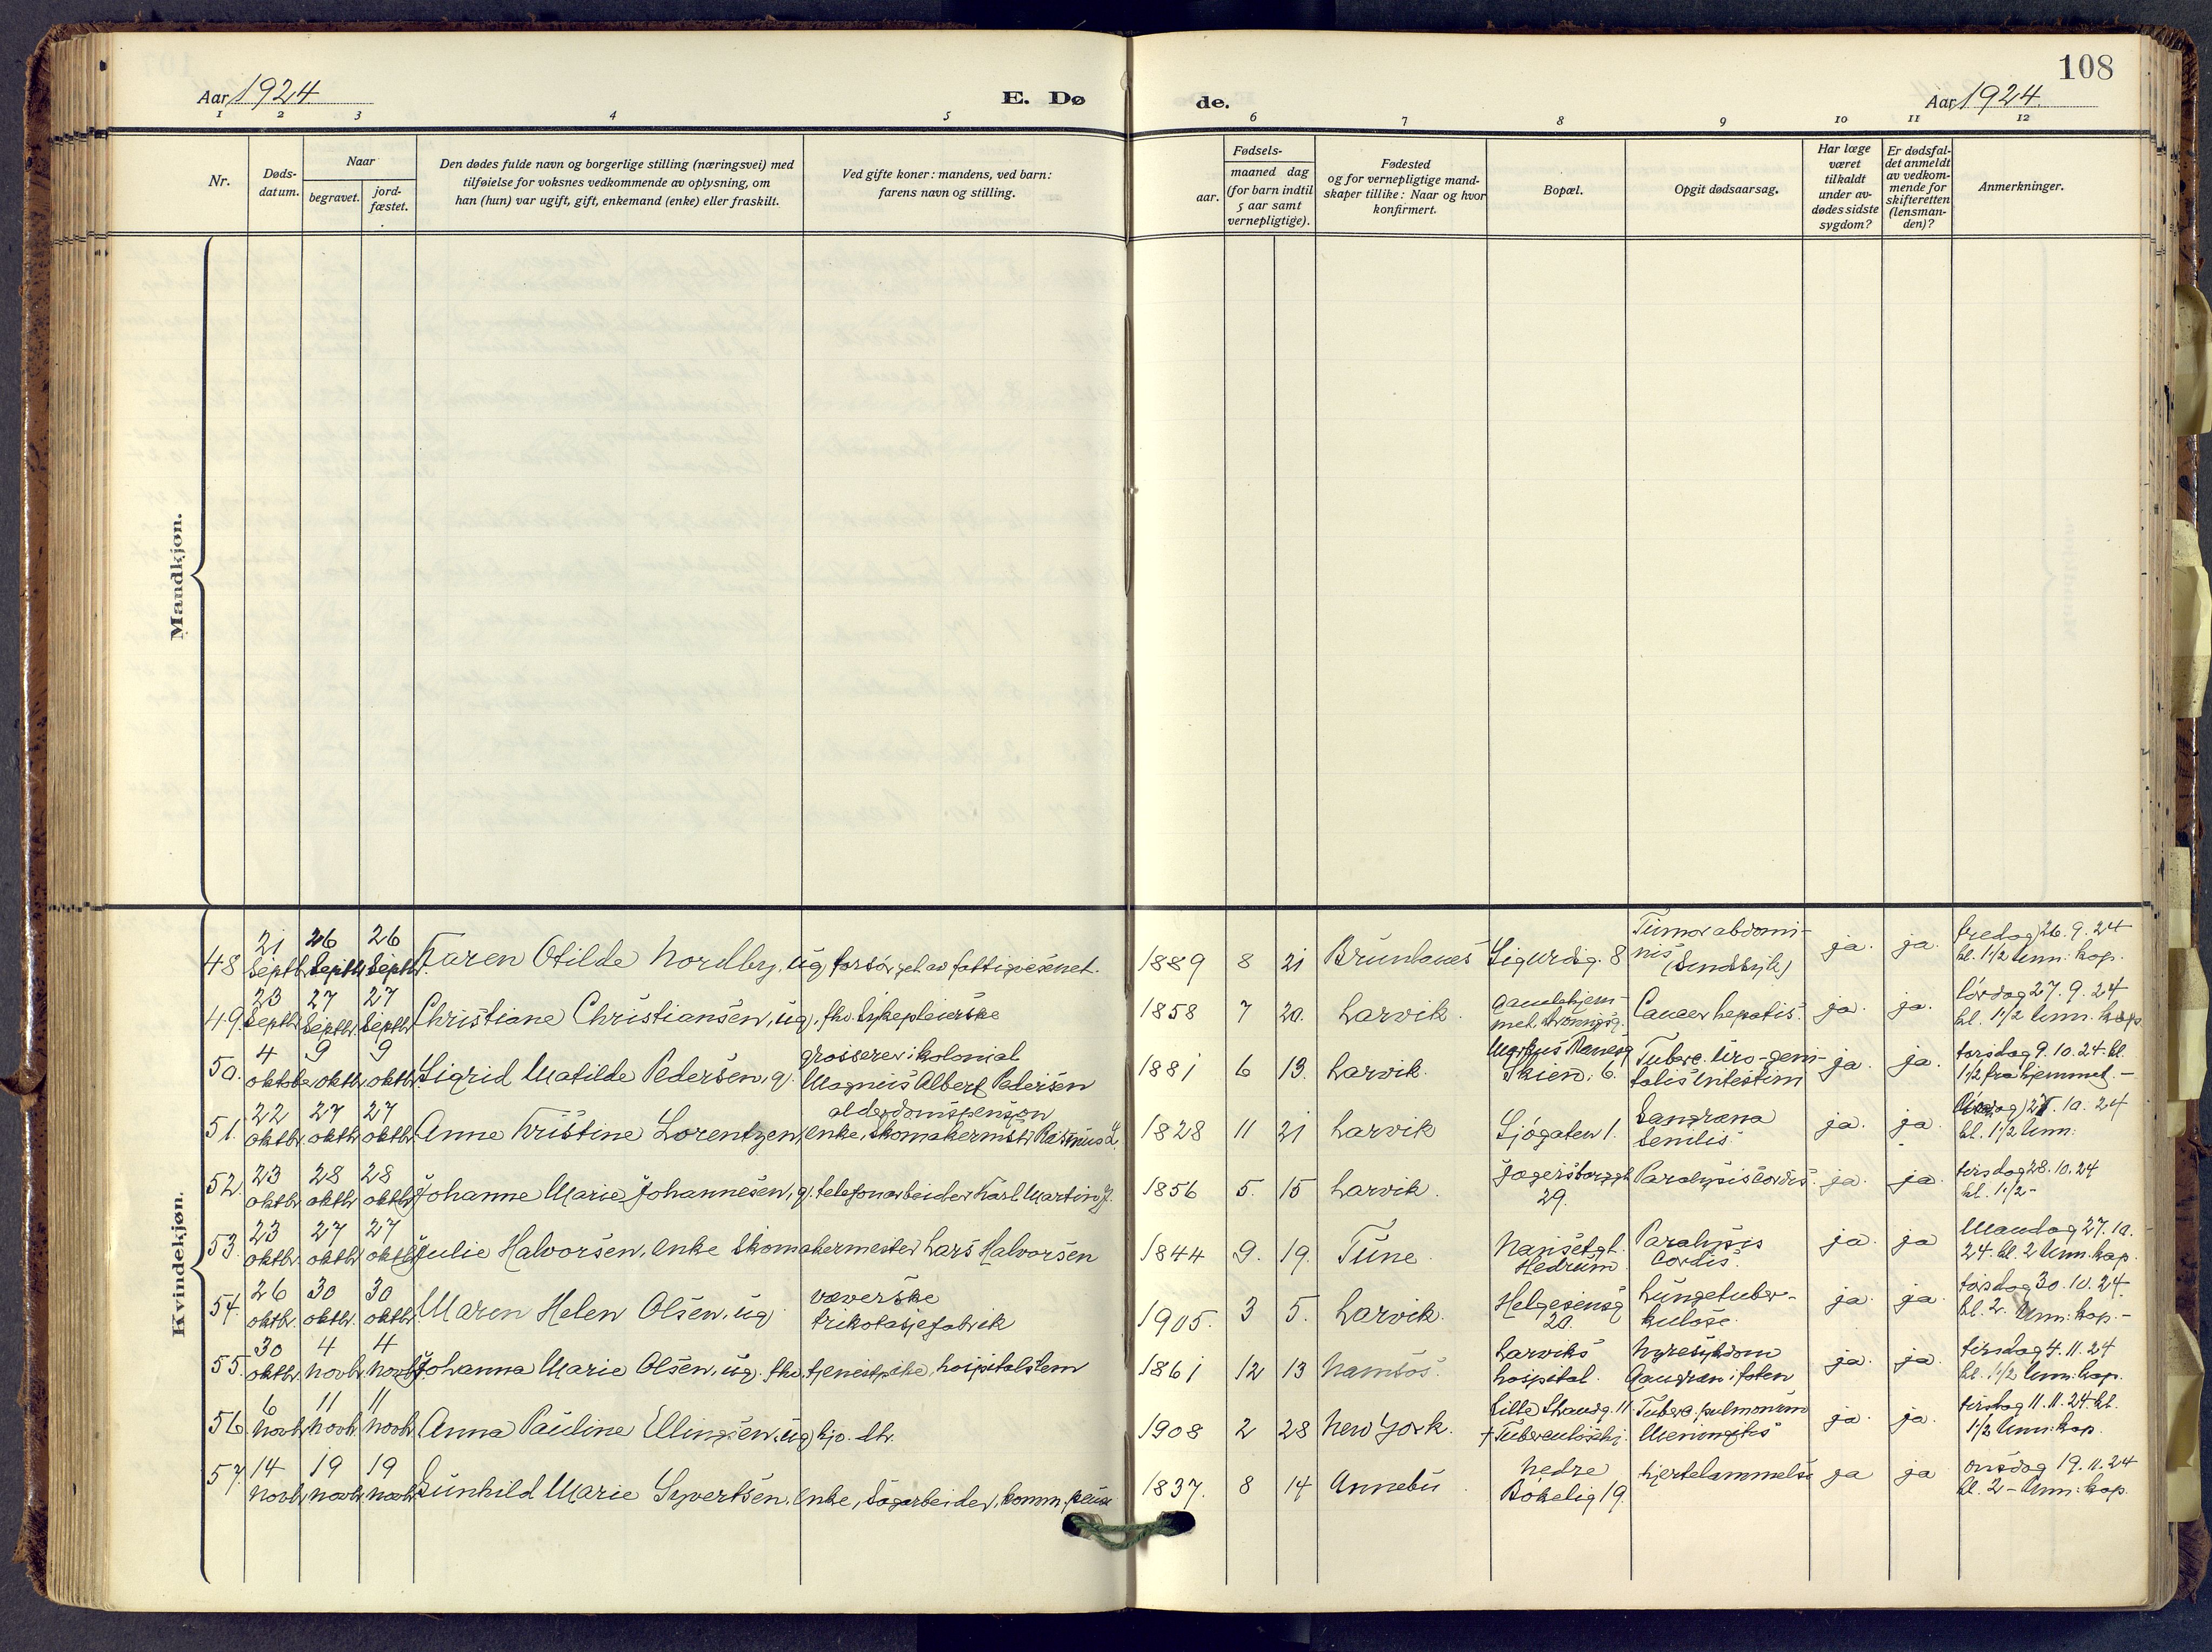 108
Aar 1924
E. Dø
de.
Aar 1924.
1 2 3 4 5 6 7 8 9 10 11 12
Nr.
Døds-
datum.
Naar
begravet.
jord-
fæstet.
Den dødes fulde navn og borgerlige stilling (næringsvei) med
tilføielse for voksnes vedkommende av oplysning, om
han (hun) var ugift, gift, enkemand (enke) eller fraskilt.
Ved gifte koner: mandens, ved barn:
farens navn og stilling.
Fødsels-
aar.
maaned dag
(for barn indtil
5 aar samt
vernepligtige).
Fødested
og for vernepligtige mand-
skaper tillike: Naar og hvor
konfirmert.
Bopæl.
Opgit dødsaarsag.
Har læge
været
tilkaldt
under av-
dødes sidste
sygdom?
Er dødsfal-
det anmeldt
av vedkom-
mende for
skifteretten
(lensman-
den)?
Anmerkninger.
Mandkjøn.
Kvindekjøn.
48 21 septbr. 26 septbr. 26 septbr. Karen Otilde Nordby, ug, forsørget av fattigvesenet. 1889 8 21 Brunlanes Sigurdsg. 8 Tumor abdomi-
nis ja. ja. fredag 26. 9. 24
kl. 1 1/2 Unn: kap.
49. 23 septbr. 27 septbr. 27 septbr. Christiane Christiansen, ug, fhv. sykepleierske 1858 7 20. Larvik. Gamlehjem-
met Cancer hepatis. ja. ja. lørdag 27. 9. 24
kl. 1 1/2 Unn. kap.
50. 4 oktober 9 oktbr. 9 oktbr. Sigrid Matilde Pedersen, g. grosserer i kolonial
Magnus Albert Pedersen 1881 6 13. Larvik.
Skien. 6. Tuberc. Uro-geni-
talis intestin ja. ja. torsdag 9. 10. 24. kl.
1/2 fra hjemmet. -
51. 22 oktbr. 27 oktbr. 27 oktbr. Anne Kristine Lorentzen, enke, alderdomspension
skomakermstr. Rasmus L. 1828 11 21 Larvik Sjøgaten 1. Gangræna
senilis. ja. ja. 27. 10. 24
kl. 1 1/2 Unn:
52. 23 oktbr. 28 oktbr. 28 oktbr. Johanne Marie Johannesen, g. telefonarbeider Karl Martin J. 1856 5. 15 Larvik. Jegersborggt.
29. Paralysis cordis. ja. ja. tirsdag 28. 10. 24
kl. 1 1/2 -
53. 23 oktbr. 27 oktbr. 27 oktbr. Julie Halvorsen, enke skomakermester Lars Halvorsen 1844 9. 19. Tune. Nansetgt.
Hedrum. Paralysis
Cordis. ja. ja Mandag 27. 10.
24. kl. 2 Unn. kap.
54. 26 oktbr. 30 oktbr. 30 oktbr. Maren Helen Olsen, ug væverske
trikotasjefabrik 1905. 3 5. Larvik. Helgesensg
20. Lungetuber-
kulose. ja. ja. torsdag 30. 10. 24.
kl. 2. Unn: kap. -
55. 30 oktbr. 4 novbr. 4 novbr. Johanna Marie Olsen, ug. fhv. tjenestpike, hospitalslem 1861 12 13 Namsos. Larviks
hospital. Nyresykdom
Gangræn i foten ja. ja. tirsdag 4. 11. 24
kl. 1 1/2 Unn: kap.
56. 6 novbr. 11 novbr. 11 novbr. Anna Pauline Ellingsen, ug hjv. dtr. 1908 2 28 New York. Lille Strandg. 11
+ Tuberculosehj. Tuberc. pulmonum
Meningitis ja. ja. tirsdag 11. 11. 24. kl.
1 1/2 Unn: kap.
57. 14 novbr. 19 novbr. 19 novbr. Gunhild Marie Syvertsen, enke, sagarbeider, komm. pens. 1837. 8 14 Annebu. Nedre
Bøkelig 19. hjertelammelse ja ja onsdag 19. 11. 24
kl. 2 - Unn: kap.